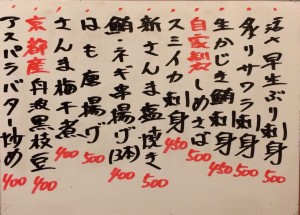 活〆早生ぶり刺 500
炙りサワラ刺身 450
生かじき鮪刺身 450
自家製しめさば 500
スミイカ刺身 450
新さんま塩焼き 500
鮪・ネギ串揚げ(3本) 400
はも唐揚げ 500
さんま梅干煮 400
京都産丹波黒枝豆 400
アスパラバター炒め 400